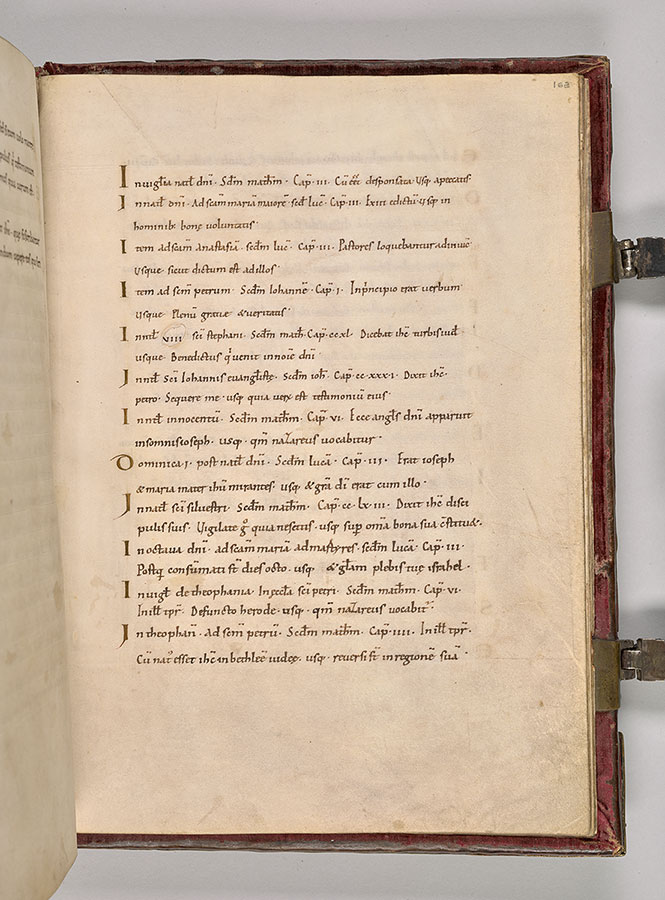 163
In uigłia natł dñi · Scdm̄ math̄m · Cap̄ · iii · Cū eēt desponsata Usq; apeccatis
In natł dñi · Ad scam̄ mariā maiorē scd̄ luc̄ · Cap̄ · iii · Exiit edictū · usq; in
hominib; bonę voluntatis
Item ad scam̄ anastasiā · scdm̄ luc̄ · Cap̄ · iii · Pastores loquebantur ad inuicē
Usque · sicut dictum est ad illos ·
Item ad scm̄ petrum · Scdm̄ Iohannē · Cap̄ · i · In p̄ncipio erat uerbum
Usque · Plenū gratiae & ueritatis ·
In natł VIII sc̄i stephani · Scdm̄ math̄ · Cap̄ · cc xl · Dicebat ih̄c turbis iud̄ ·
usque · Benedictus q́ uenit in noīe dñi
In natł Sc̄i Iohannis euangłistę · Scdm̄ ioh̄ · Cap̄ · cc · xxx · i · Dixit ih̄c
petro · Sequere me · usq; quia uerū est testimoniū eius
In natł innocentū · Scdm̄ math̄m · Cap̄ · vi · Ecce angłs dñi apparuit
in somnis ioseph · usq; · qm̄ nazareus uocabitur ·
Dominica · i · post natł dñi · Scdm̄ lucā · Cap̄ · iii · Erat ioseph
& maria mater ih̄u mirantes · usq; & gr̄a dī erat cum illo ·
In natł sc̄i siluestri · Scdm̄ math̄m · Cap̄ · cc · lx · iii · Dixit ih̄c disci
pulis suis · Uigilate g̊ quia nescitis · usq; sup̄ om̄ia bona sua c̄stitu& ·
In octaua dñi · ad scam̄ mariā ad martyres · scdm̄ lucā · Cap̄ · iii ·
Postq̄ consūmati st̄ dies octo · usq; & głam plebis tuę israhel ·
In uigł de theophania · In ęccła sc̄i petri · Scdm̄ math̄m · Cap̄ · vi ·
In iłł tp̄r · Defuncto herode · usq; · qm̄ nazareus uocabit᷑ ·
In theophañ · ad scm̄ petrū · Scdm̄ math̄m · Cap̄ · iiii · In iłł tp̄r ·
Cū nat᷒ esset ih̄c in bethleē iudęę · usq; · reuersi st̄ in regionē suā ·